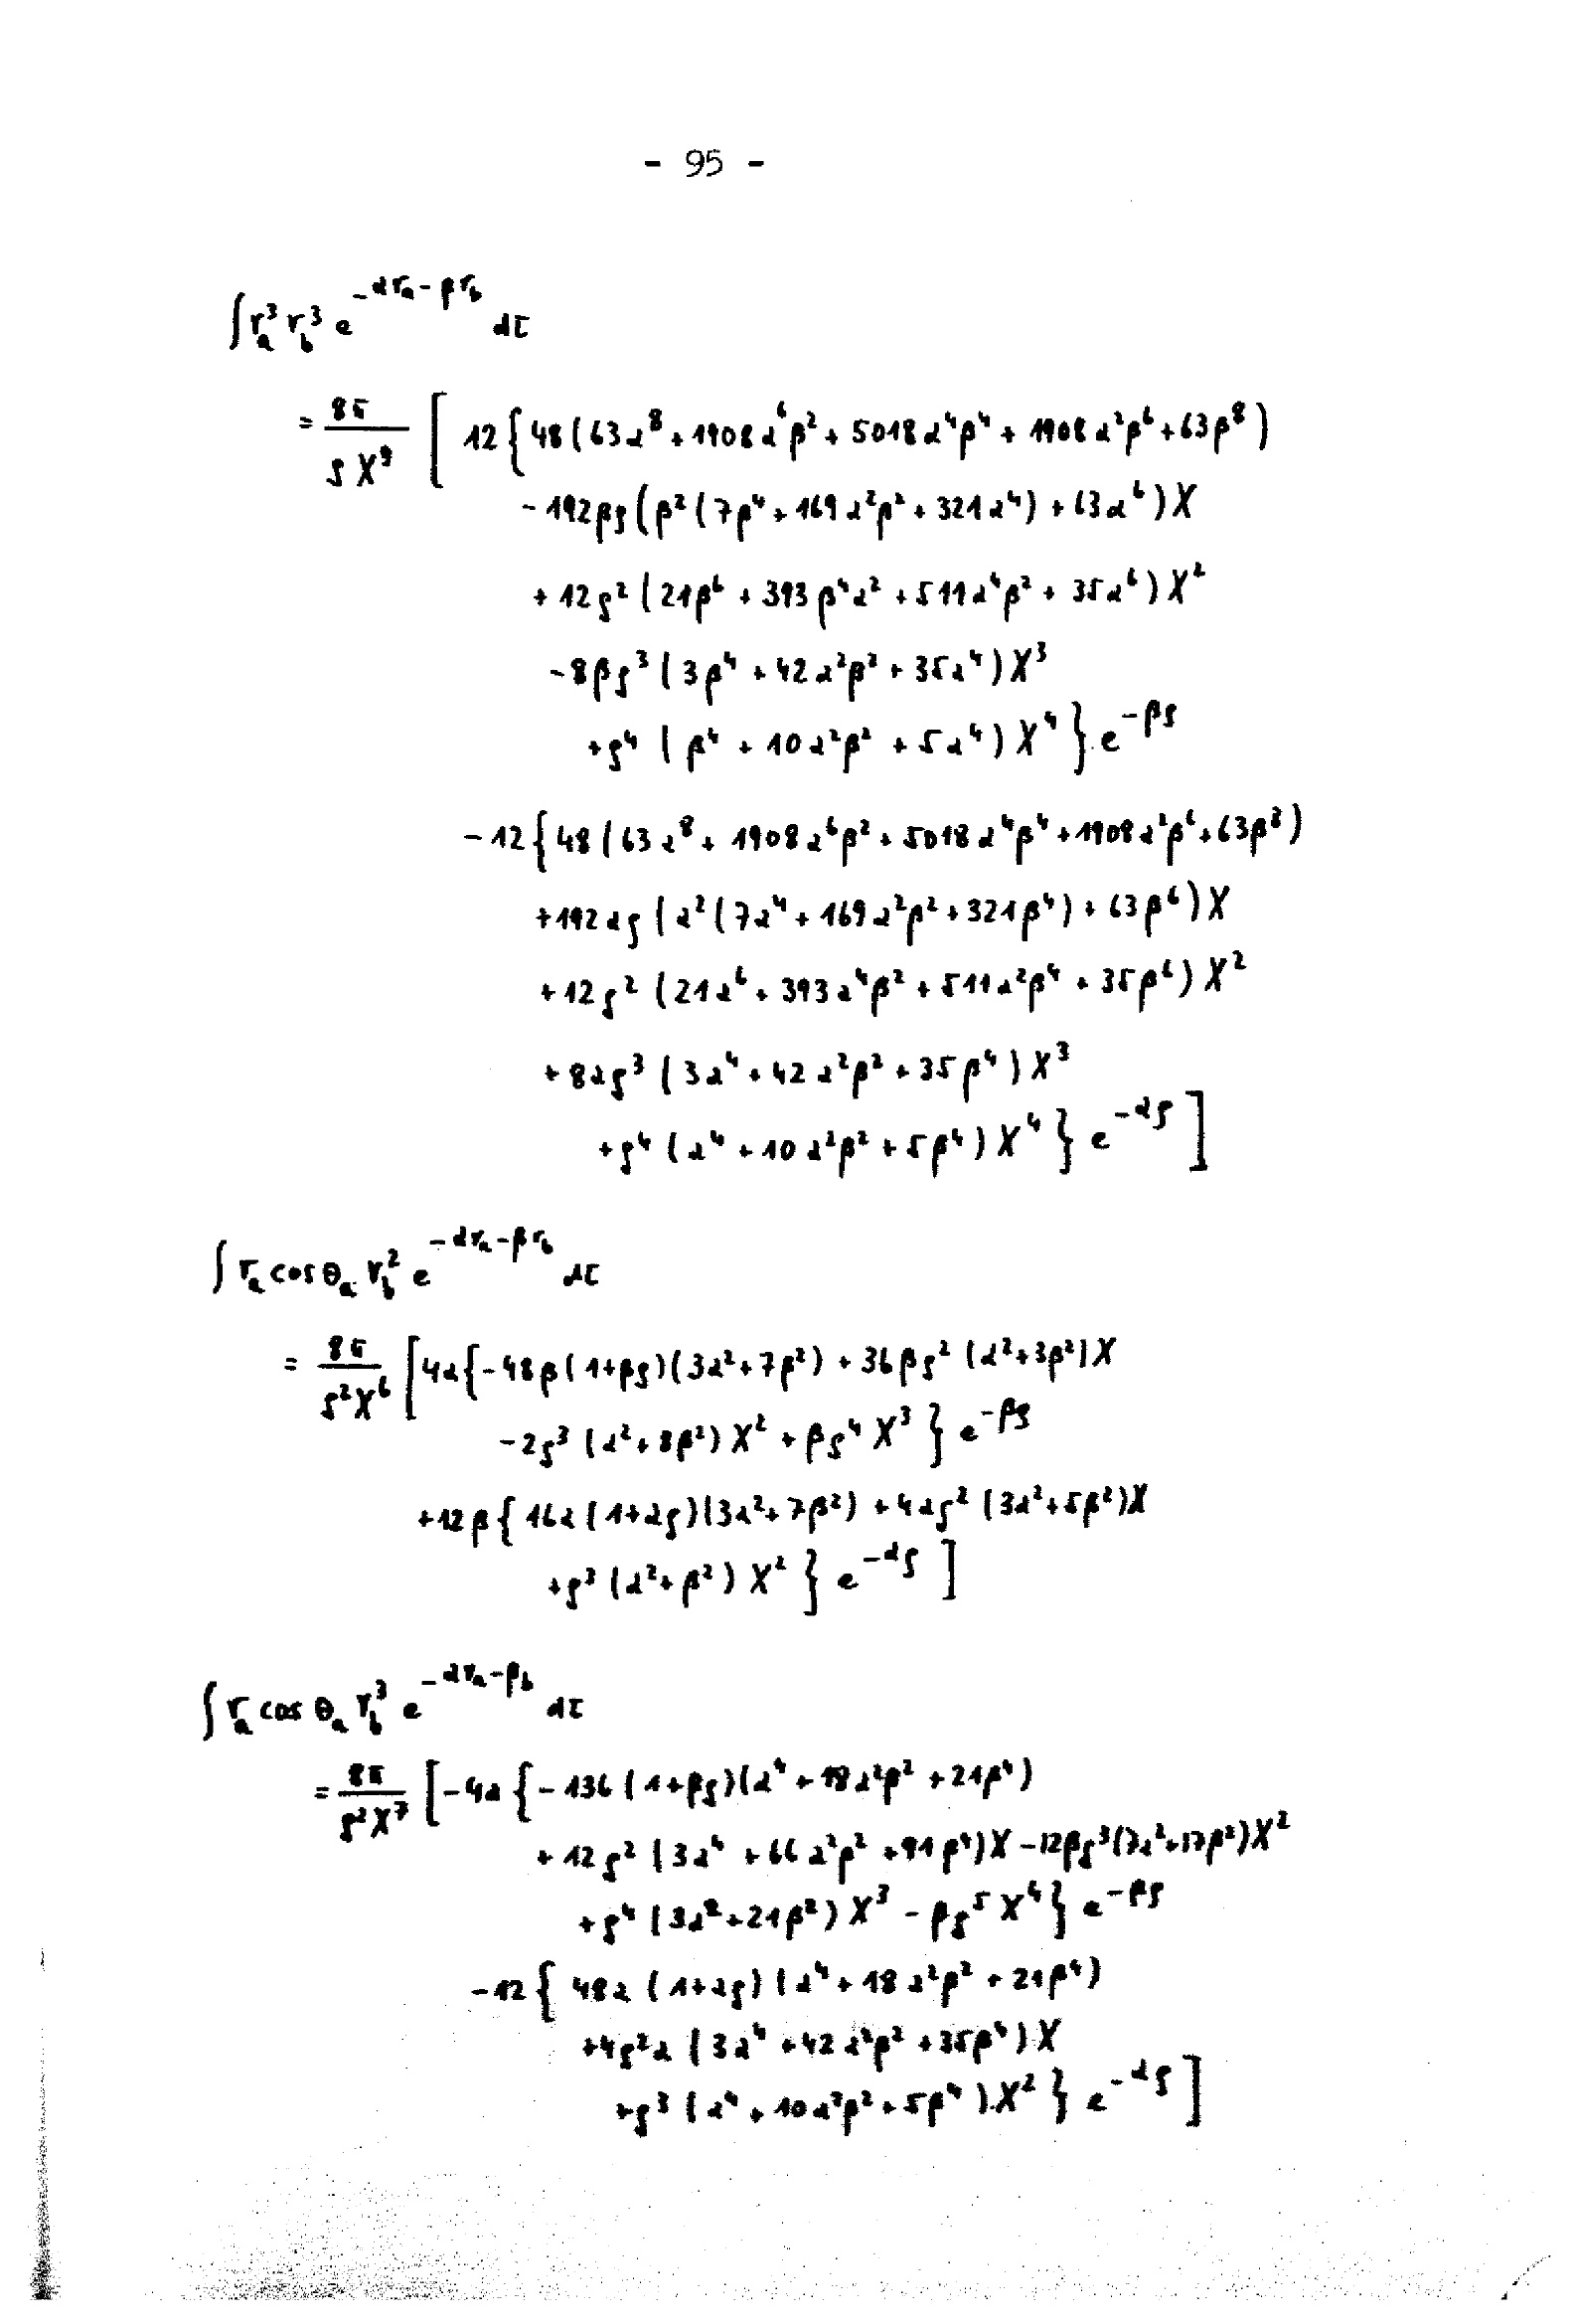 - 95 -
∫ r_a^3 r_b^3 e^{-αr_a - βr_b} dτ
= \frac{8π}{ρX^9} [ 12 { 48 ( 63α^8 + 1908α^6β^2 + 5018α^4β^4 + 1908α^2β^6 + 63β^8 )
- 192βρ ( β^2 ( 7β^4 + 169α^2β^2 + 321α^4 ) + 63α^6 ) X
+ 12ρ^2 ( 21β^6 + 393β^4α^2 + 511α^4β^2 + 35α^6 ) X^2
- 8βρ^3 ( 3β^4 + 42α^2β^2 + 35α^4 ) X^3
+ ρ^4 ( β^4 + 10α^2β^2 + 5α^4 ) X^4 } e^{-βρ}
- 12 { 48 ( 63α^8 + 1908α^6β^2 + 5018α^4β^4 + 1908α^2β^6 + 63β^8 )
+ 192αρ ( α^2 ( 7α^4 + 169α^2β^2 + 321β^4 ) + 63β^6 ) X
+ 12ρ^2 ( 21α^6 + 393α^4β^2 + 511α^2β^4 + 35β^6 ) X^2
+ 8αρ^3 ( 3α^4 + 42α^2β^2 + 35β^4 ) X^3
+ ρ^4 ( α^4 + 10α^2β^2 + 5β^4 ) X^4 } e^{-αρ} ]
∫ r_a cos θ_a r_b^2 e^{-αr_a - βr_b} dτ
= \frac{8π}{ρ^2X^6} [ 4α { - 48β ( 1 + βρ ) ( 3α^2 + 7β^2 ) + 36βρ^2 ( α^2 + 3β^2 ) X
- 2ρ^3 ( α^2 + 8β^2 ) X^2 + βρ^4 X^3 } e^{-βρ}
+ 12β { 16α ( 1 + αρ ) ( 3α^2 + 7β^2 ) + 4αρ^2 ( 3α^2 + 5β^2 ) X
+ ρ^3 ( α^2 + β^2 ) X^2 } e^{-αρ} ]
∫ r_a cos θ_a r_b^3 e^{-αr_a - β_b} dτ
= \frac{8π}{ρ^2X^7} [ - 4α { - 136 ( 1 + βρ ) ( α^4 + 18α^2β^2 + 21β^4 )
+ 12ρ^2 ( 3α^4 + 66α^2β^2 + 91β^4 ) X - 12βρ^3 ( 7α^2 + 17β^2 ) X^2
+ ρ^4 ( 3α^2 + 21β^2 ) X^3 - βρ^5 X^4 } e^{-βρ}
- 12 { 48α ( 1 + αρ ) ( α^4 + 18α^2β^2 + 21β^4 )
+ 4ρ^2α ( 3α^4 + 42α^2β^2 + 35β^4 ) X
+ ρ^3 ( α^4 + 10α^2β^2 + 5β^4 ) X^2 } e^{-αρ} ]